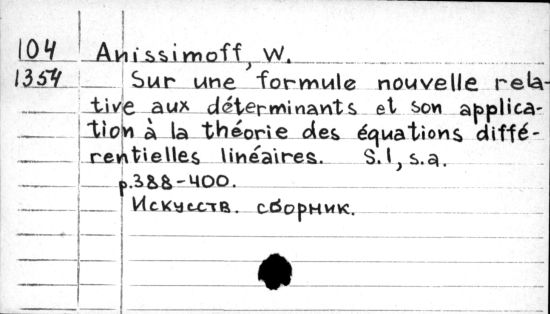 104 Anissimoff, W.
1354 Sur une formule nouvelle rela-
tive aux déterminants et son applica-
tion à la théorie des équations diffé-
rentielles linéaires. S.l, s.a.
p.388-400.
Искусств. сборник.